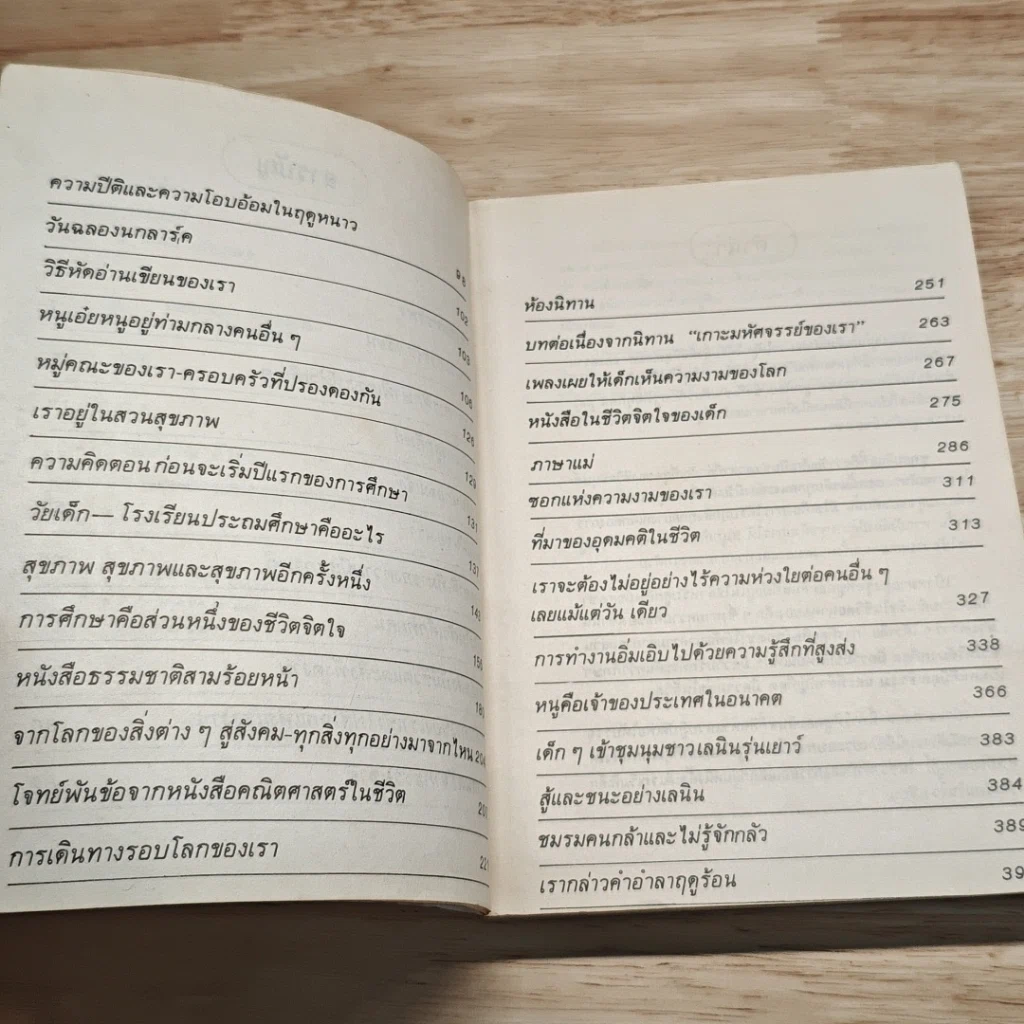 ความปีติและความโอบอ้อมในฤดูหนาว 98
วันฉลองนกลาร์ค 102
วิธีหัดอ่านเขียนของเรา 103
หนูเอ๋ยหนูอยู่ท่ามกลางคนอื่น ๆ 106
หมู่คณะของเรา-ครอบครัวที่ปรองดองกัน 126
เราอยู่ในสวนสุขภาพ 129
ความคิดตอนก่อนจะเริ่มปีแรกของการศึกษา 131
วัยเด็ก— โรงเรียนประถมศึกษาคืออะไร 137
สุขภาพ สุขภาพและสุขภาพอีกครั้งหนึ่ง
การศึกษาคือส่วนหนึ่งของชีวิตจิตใจ
หนังสือธรรมชาติสามร้อยหน้า
จากโลกของสิ่งต่าง ๆ สู่สังคม-ทุกสิ่งทุกอย่างมาจากไหน
โจทย์พันข้อจากหนังสือคณิตศาสตร์ในชีวิต
การเดินทางรอบโลกของเรา
ห้องนิทาน 251
บทต่อเนื่องจากนิทาน “เกาะมหัศจรรย์ของเรา” 263
เพลงเผยให้เด็กเห็นความงามของโลก 267
หนังสือในชีวิตจิตใจของเด็ก 275
ภาษาแม่ 286
ซอกแห่งความงามของเรา 311
ที่มาของอุดมคติในชีวิต 313
เราจะต้องไม่อยู่อย่างไร้ความห่วงใยต่อคนอื่น ๆ
เลยแม้แต่วัน เดียว 327
การทำงานอิ่มเอิบไปด้วยความรู้สึกที่สูงส่ง 338
หนูคือเจ้าของประเทศในอนาคต 366
เด็ก ๆ เข้าชุมนุมชาวเลนินรุ่นเยาว์ 383
สู้และชนะอย่างเลนิน 384
ชมรมคนกล้าและไม่รู้จักกลัว 389
เรากล่าวคำอำลาฤดูร้อน